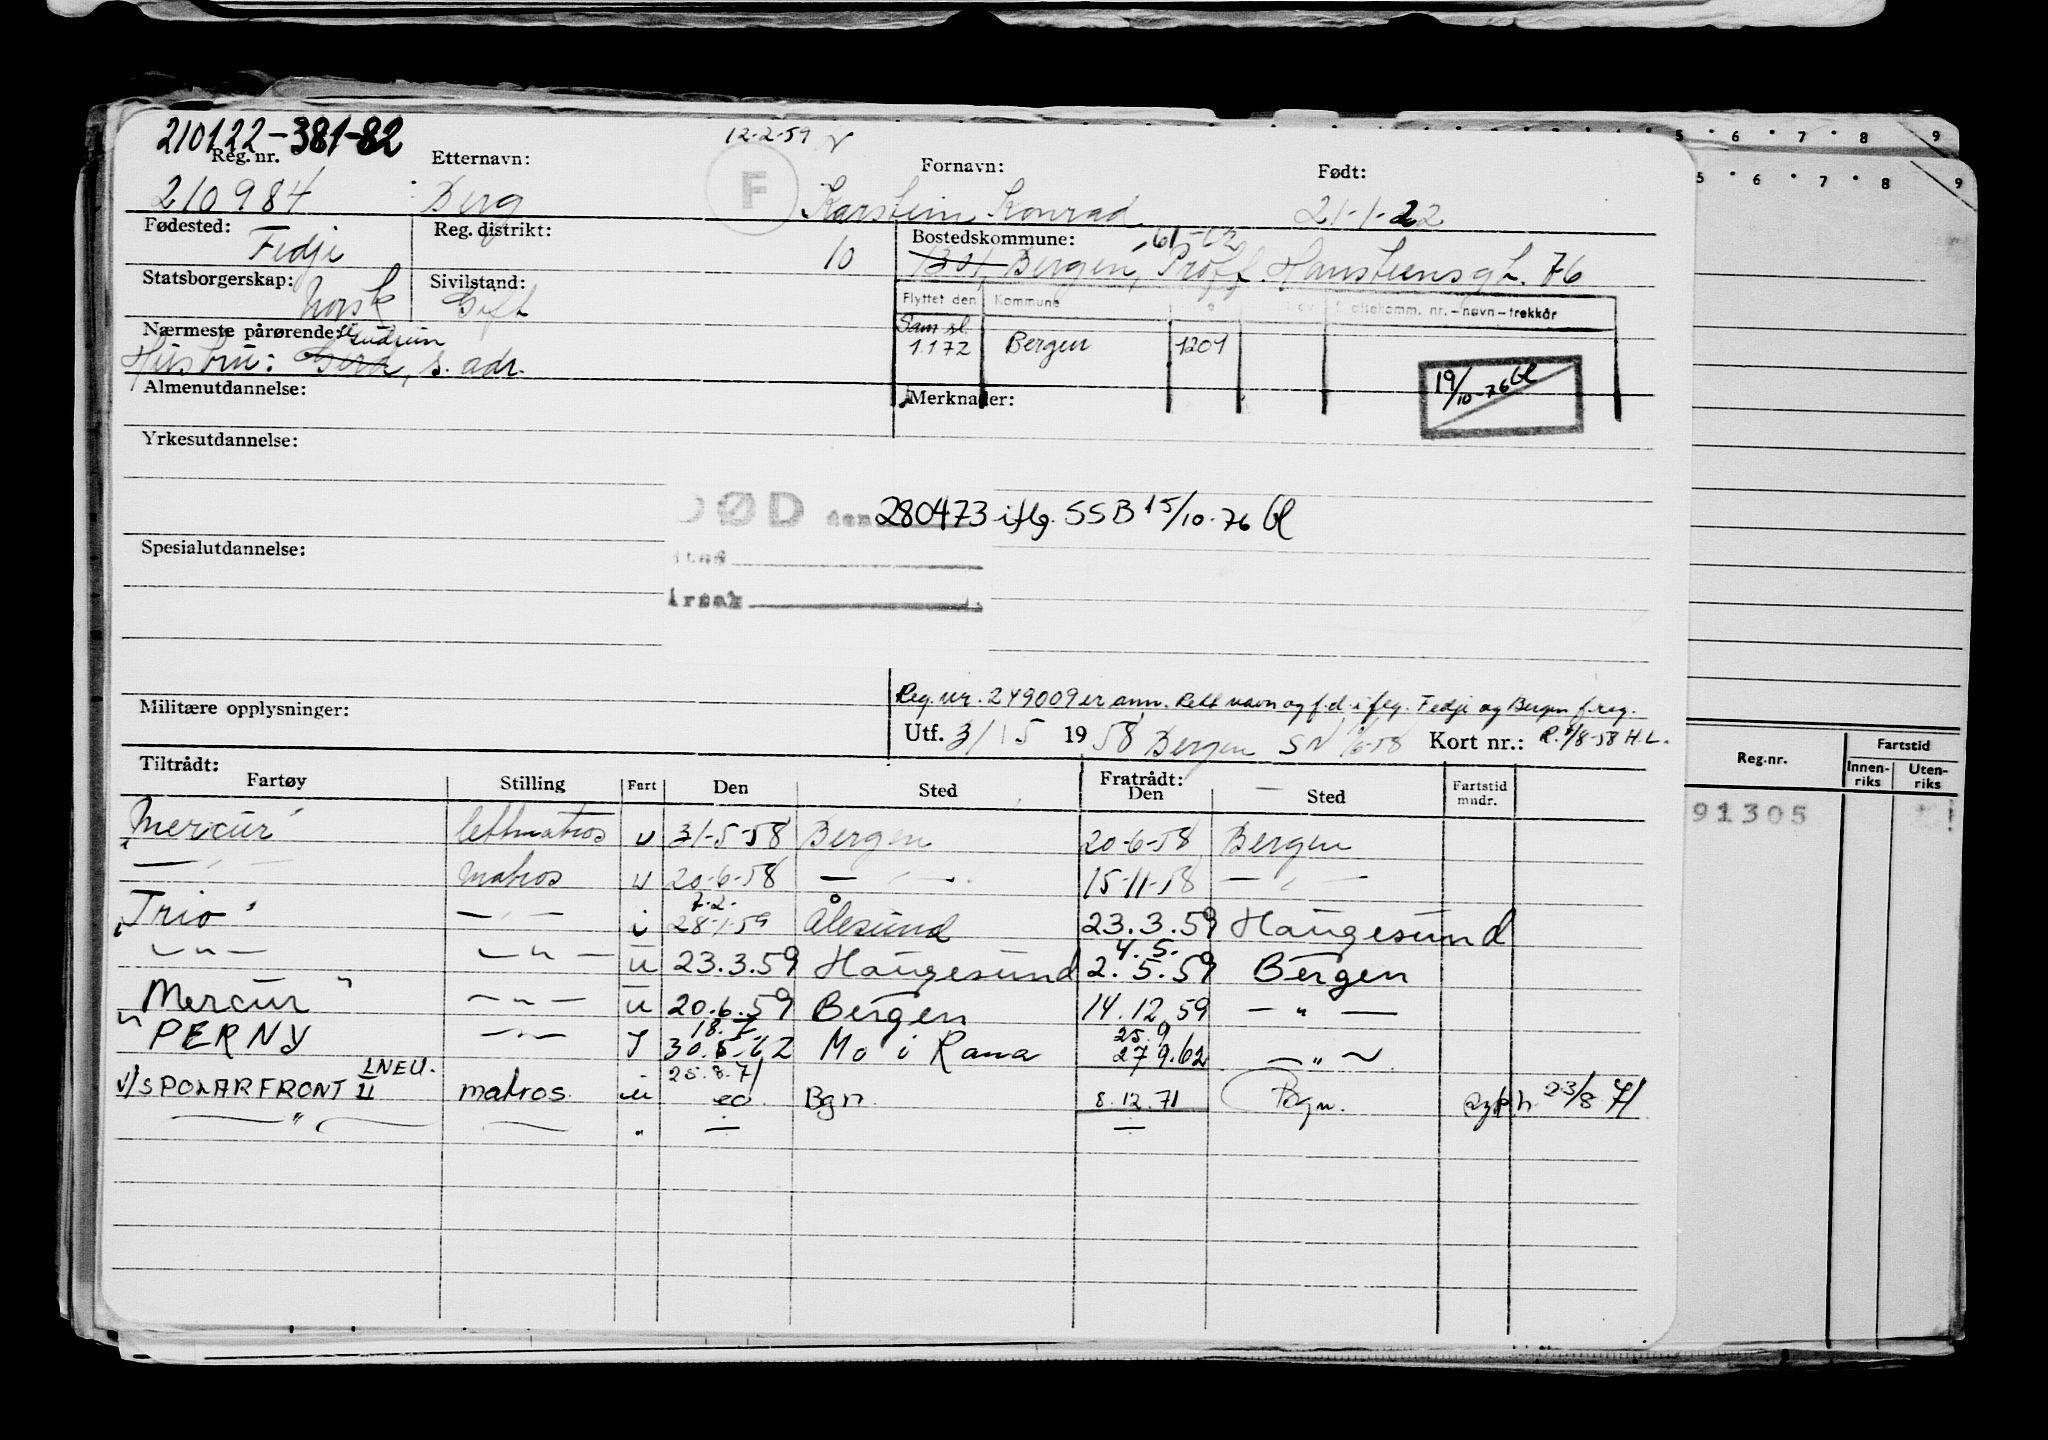 210122-381-82
12-2-59
Reg. nr. Etternavn: F Fornavn: Født:
210984 Berg Karstein Konrad 21-1-22
Fødested: Fedje Reg. distrikt: 10 Bostedskommune:
1301, Bergen, Proff. Hansteensgt. 76
Statsborgerskap: Norsk Sivilstand: Gift
Flyttet den Kommune Skattekomm. nr.-navn-trekkår
Sam sl.
1.1 72 Bergen 1201
Nærmeste pårørende: Gudrun
Hustru: Gerd, s. adr.
19/10-76 Gl
Almenutdannelse: Merknader:
Yrkesutdannelse:
DØD den 280473 iflg. SSB 15/10-76 Gl
Spesialutdannelse:
sted
årsak
Reg. nr. 249009 er ann. Rett navn og f.d. iflg. Fedje og Bergen f.reg.
Militære opplysninger:
Utf. 31/5 1958 Bergen SN Kort nr.: R. 1/8-58 H.L.
Tiltrådt: Fratrådt:
Fartøy Stilling Fart Den Sted Den Sted Fartstid mndr.
Mercur lettmatros u 31-5-58 Bergen 20-6-58 Bergen
— " — matros u 20-6-58 — " — 15-11-58 — " —
7.2.
Trio — " — i 28-1-59 Ålesund 23.3.59 Haugesund
4.5.
— " — — " — u 23.3.59 Haugesund 2.5.59 Bergen
Mercur — " — u 20.6.59 Bergen 14.12.59 — " —
18.7. 25.9
" PERNY — " — 30.5-62 Mo i Rana 27 9.62 — " —
LNEU. 25.8.71
V/S POLARFRONT II matros. u Bgn. 8.12.71 Bgn. 23/8 71
— " —
5 6 7 8 9
5 6 7 8 9
Reg.nr. Fartstid
Innenriks Utenriks
91305